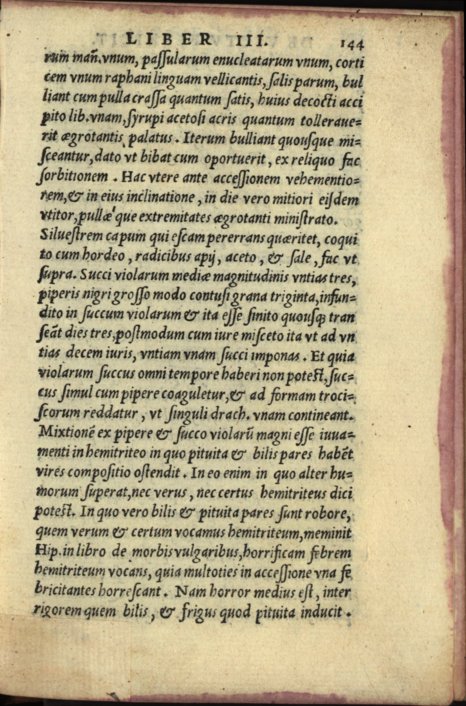 LIBER III. 144
rum mañ. vnum, paſſularum enucleatarum vnum, corti
cem vnum raphani linguam vellicantis, ſalis parum, bul
liant cum pulla craſſa quantum ſatis, huius decocti acci
pito lib. vnam, ſyrupi acetoſi acris quantum tolleraue-
rit ægrotantis palatus. Iterum bulliant quouſque mi-
ſceantur, dato vt bibat cum oportuerit, ex reliquo fac
ſorbitionem. Hac vtere ante acceſſionem vehementio-
rem, & in eius inclinatione, in die vero mitiori eiſdem
vtitor, pullæ que extremitates ægrotanti miniſtrato.
Silueſtrem capum qui eſcam pererrans quæritet, coqui
to cum hordeo, radicibus apij, aceto, & ſale, fac vt
ſupra. Succi violarum mediæ magnitudinis vntias tres,
piperis nigri groſſo modo contuſi grana triginta, infun-
dito in ſuccum violarum & ita eſſe ſinito quouſq; tran
ſeãt dies tres, poſtmodum cum iure miſceto ita vt ad vn
tias decem iuris, vntiam vnam ſucci imponas. Et quia
violarum ſuccus omni tempore haberi non poteſt, ſuc-
cus ſimul cum pipere coaguletur, & ad formam troci-
ſcorum reddatur, vt ſinguli drach. vnam contineant.
Mixtionẽ ex pipere & ſucco violarũ magni eſſe iuua-
menti in hemitriteo in quo pituita & bilis pares habẽt
vires compoſitio oſtendit. In eo enim in quo alter hu-
morum ſuperat, nec verus, nec certus hemitriteus dici
poteſt. In quo vero bilis & pituita pares ſunt robore,
quem verum & certum vocamus hemitriteum, meminit
Hip. in libro de morbis vulgaribus, horrificam febrem
hemitriteum vocans, quia multoties in acceſſione vna fe
bricitantes horreſcant. Nam horror medius eſt, inter
rigorem quem bilis, & frigus quod pituita inducit.